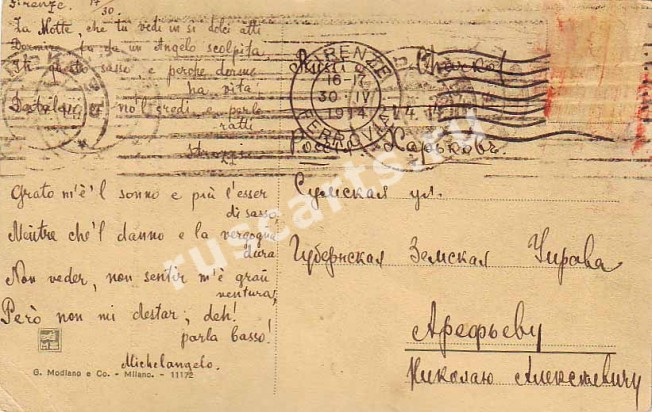 Firenze. 17
30.
La Notte, che tu vedi in sì dolci atti
Dormire, fu da un Angelo scolpita
In questo sasso e perché dorme
ha vita:
Destala, se no'l credi e parle
ratti
Strozzi
Grato m'è'l sonno e più l'esser
di sasso,
Mentre che'l danno e la vergogna
dura
Non veder, non sentir m'è gran
ventura,
Però non mi destar; deh!
parla basso!
Michelangelo.
G. Modiano e Co. - Milano. - 11172
FIRENZE
16-17
30·IV
1914
FERROVIA
Харьковъ.
Сумская ул.
Губернская Земская Управа
Арефьеву
Николаю Алексѣевичу
ruscarts.ru